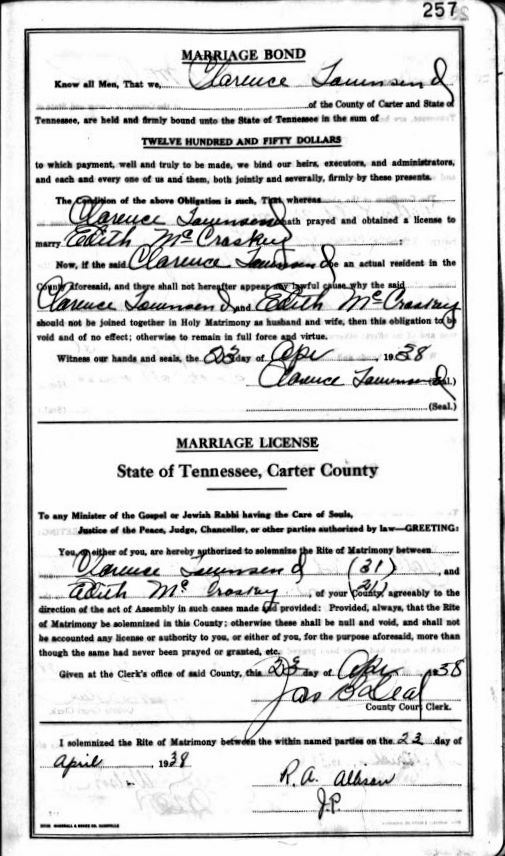 257
MARRIAGE BOND
Know all Men, That we, Clarence Townsend
of the County of Carter and State of
Tennessee, are held and firmly bound unto the State of Tennessee in the sum of
TWELVE HUNDRED AND FIFTY DOLLARS
to which payment, well and truly to be made, we bind our heirs, executors, and administrators,
and each and every one of us and them, both jointly and severally, firmly by these presents.
The Condition of the above Obligation is such, That whereas
Clarence Townsend hath prayed and obtained a license to
marry Edith McCroskey :
Now, if the said Clarence Townsend be an actual resident in the
County aforesaid, and there shall not hereafter appear any lawful cause why the said
Clarence Townsend and Edith McCroskey
should not be joined together in Holy Matrimony as husband and wife, then this obligation to be
void and of no effect; otherwise to remain in full force and virtue.
Witness our hands and seals, the 23 day of Apr , 1938
Clarence Townsend (Seal.)
(Seal.)
MARRIAGE LICENSE
State of Tennessee, Carter County
To any Minister of the Gospel or Jewish Rabbi having the Care of Souls,
Justice of the Peace, Judge, Chancellor, or other parties authorized by law—GREETING:
You, or either of you, are hereby authorized to solemnize the Rite of Matrimony between
Clarence Townsend (31) , and
Edith McCroskey (21) , of your County, agreeably to the
direction of the act of Assembly in such cases made and provided: Provided, always, that the Rite
of Matrimony be solemnized in this County; otherwise these shall be null and void, and shall not
be accounted any license or authority to you, or either of you, for the purpose aforesaid, more than
though the same had never been prayed or granted, etc.
Given at the Clerk's office of said County, this 23 day of Apr 1938
Jas B Leal
County Court Clerk.
I solemnized the Rite of Matrimony between the within named parties on the 23 day of
April , 1938
R. A. Allison
J.P.